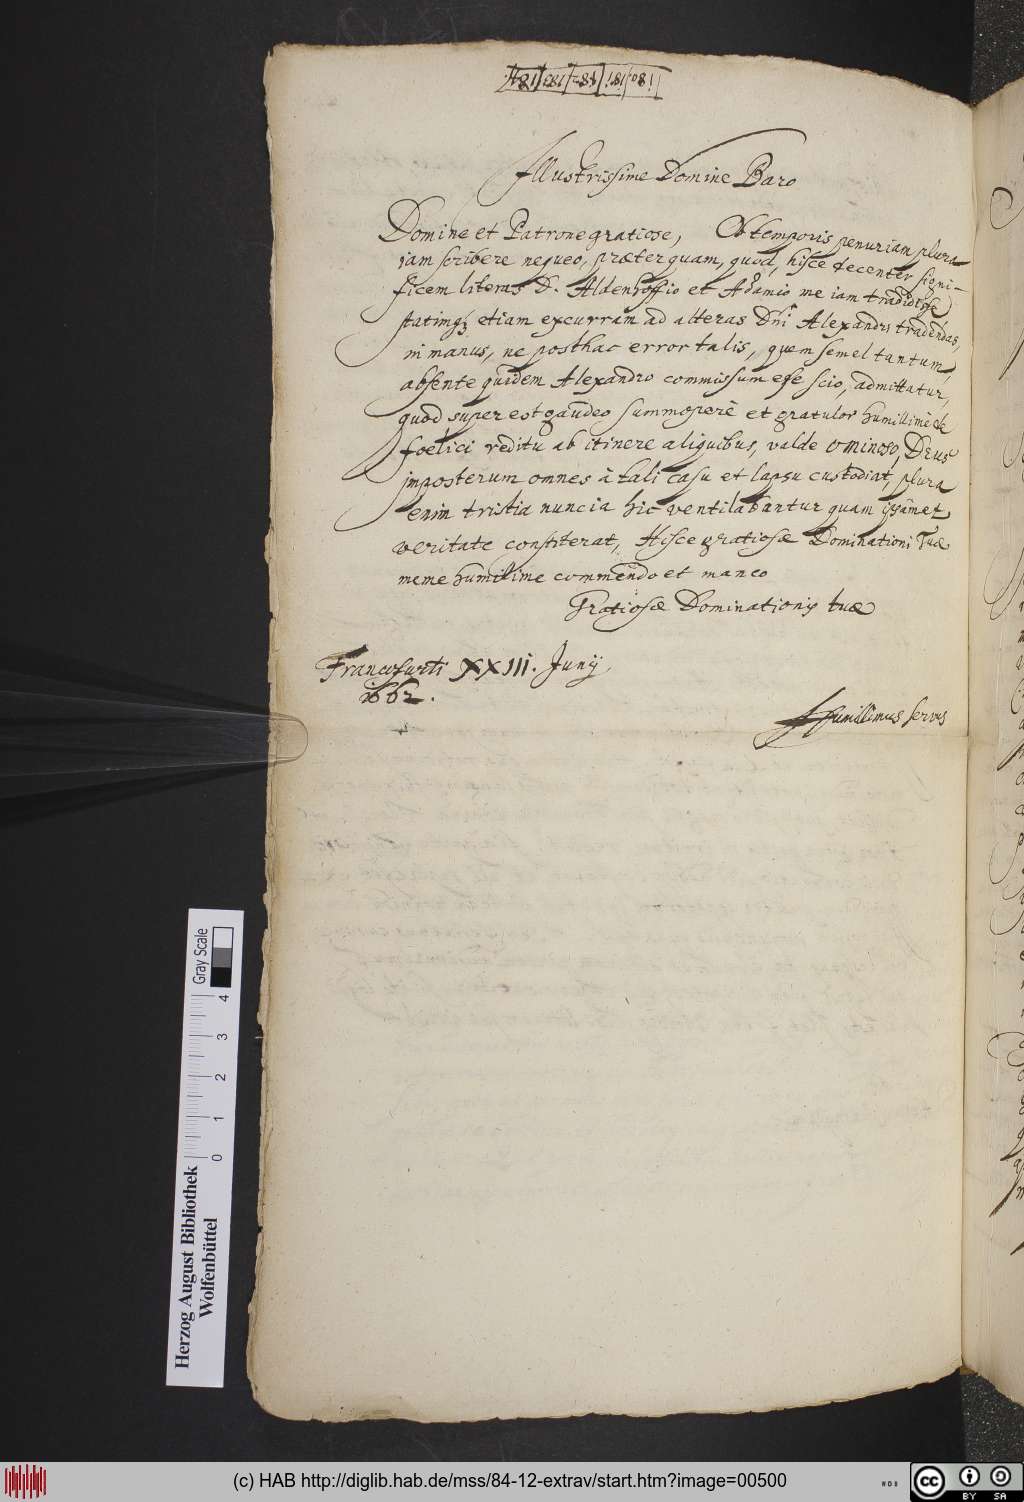 181 180
Illustrissime Domine Baro
Domine et Patrone gratiose, Ob temporis penuriam plura
iam scribere nequeo, præterquam, quod, hisce decenter signi-
ficem literas D. Aldenhoffio et Adamio me iam tradidisse
statimq; etiam excurram ad alteras Dni Alexandri tradendas,
in manus, ne posthac error talis, quem semel tantum,
absente quidem Alexandro commissum esse scio, admittatur,
quod super est gaudeo summoperè et gratulor humillimè de
foelici reditu ab itinere aliquibus, valde ominoso, Deus
imposterum omnes à tali casu et lapsu custodiat, plura
enim tristia nuncia hic ventilabantur quam ipsamet
veritate constiterat, Hisce gratiosæ Dominationi Tuæ
meme humilime commendo et maneo
Gratiosæ Dominationis tuæ
Francofurti XXIII. Junij
1662.
Humillimus servus
Gray Scale
0 1 2 3 4
Herzog August Bibliothek
Wolfenbüttel
(c) HAB http://diglib.hab.de/mss/84-12-extrav/start.htm?image=00500
WDB
cc BY SA